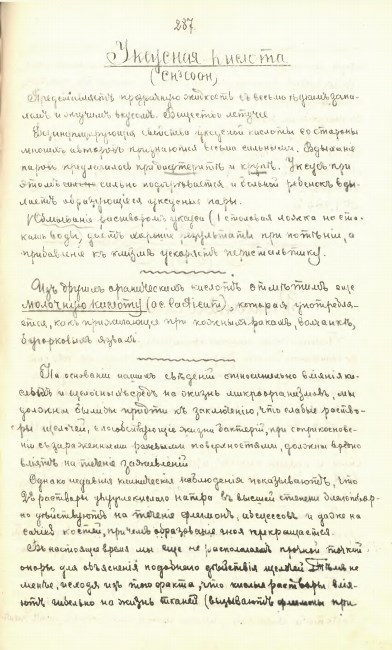 237
Уксусная кислота
(CH³COOH)
Представляетъ прозрачную жидкость съ весьма ѣдкимъ запа-
хомъ и жгучимъ вкусомъ. Вещество летучее.
свойства уксусной кислоты со стороны
многихъ авторовъ признаются весьма сильными. Вдыханіе
паровъ предложилось при дифтеритѣ и крупѣ. Уксусъ при
этомъ сильно подогрѣвается и больной ребенокъ вды-
хаетъ образующіеся уксусные пары.
растворомъ уксуса (1 столовая ложка на ста-
канъ воды) даетъ хорошіе результаты при потѣніи, а
прибавленіе къ клизмѣ ускоряетъ перистальтику.
Изъ другихъ органическихъ кислотъ отмѣтимъ еще
молочную кислоту (ac. lacticum), которая употребля-
ется, какъ прижигающая при кожныхъ ракахъ, волчанкѣ,
бугорковыхъ язвахъ
На основаніи нашихъ свѣдѣній относительно вліянія ки-
слыхъ и щелочныхъ средъ на жизнь микроорганизмовъ, мы
должны были бы придти къ заключенію, что слабые раство-
ры щелочей, благопріятствующіе жизни бактерій, при соприкоснове-
ніи съ зараженными раневыми поверхностями, должны вредно
вліять на теченіе заживленій
Однако недавнія клиническія наблюденія показываютъ, что
2% растворы двууглекислаго натра въ высшей степени благотвор-
но дѣйствуютъ на теченіе флегмонъ, абсцессовъ и даже на
костей, причемъ образованіе гноя прекращается.
Въ настоящее время мы еще не располагаемъ прочной точкой
опоры для объясненія подобнаго дѣйствія щелочей. Тѣмъ не
менѣе, исходя изъ того факта, что кислые растворы влія-
ютъ гибельно на жизнь тканей (вызываютъ при